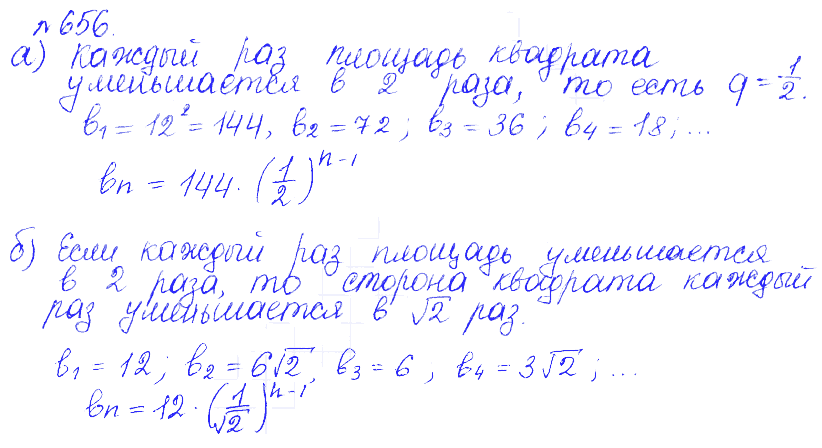 №656.
а) Каждый раз площадь квадрата
уменьшается в 2 раза, то есть q = 1/2.
b₁ = 12² = 144, b₂ = 72; b₃ = 36; b₄ = 18; ...
bn = 144 · (1/2)ⁿ⁻¹
б) Если каждый раз площадь уменьшается
в 2 раза, то сторона квадрата каждый
раз уменьшается в √2 раз.
b₁ = 12; b₂ = 6√2, b₃ = 6, b₄ = 3√2; ...
bn = 12 · (1/√2)ⁿ⁻¹